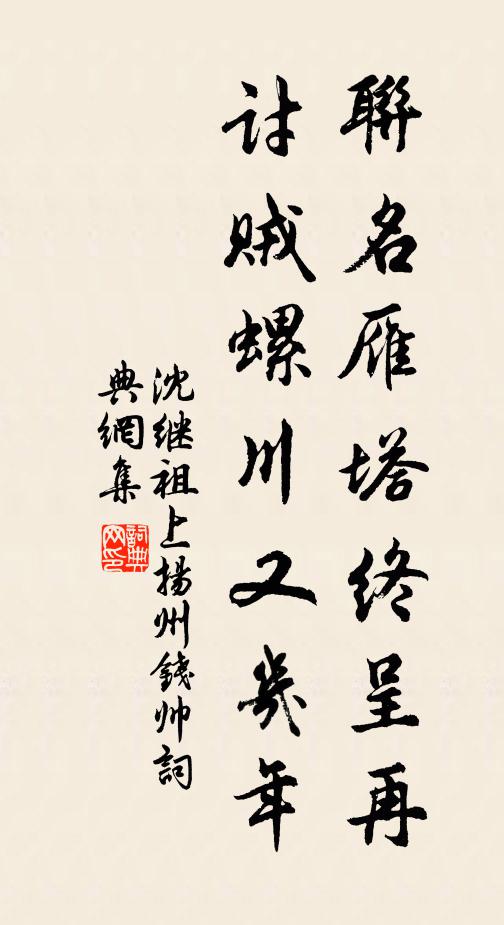 聯名雁塔終呈再
討賊螺川又幾年
沈继祖上揚州錢帅詞
典網集
詞典
网印